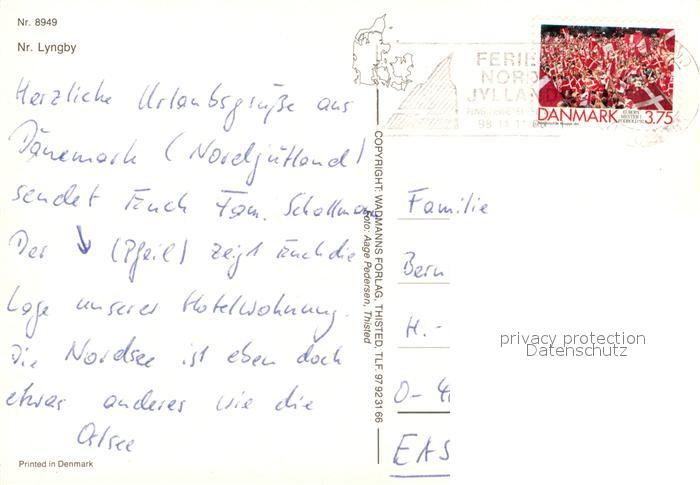 Nr. 8949
Nr. Lyngby
Herzliche Urlaubsgrüße aus
Dänemark (Nordjütland)
sendet Euch Fam. Schollmann
Der ↓ (Pfeil) zeigt Euch die
Lage unserer Hotelwohnung.
Die Nordsee ist eben doch
etwas anderes wie die
Ostsee
Printed in Denmark
COPYRIGHT: WADMANNS FORLAG, THISTED. TLF. 97 92 31 66
Foto: Aage Pedersen, Thisted
FERIE
NORD
JYLLAN
98 13
DANMARK 3.75
Familie
Bern
H.-
O-
EAS
privacy protection
Datenschutz